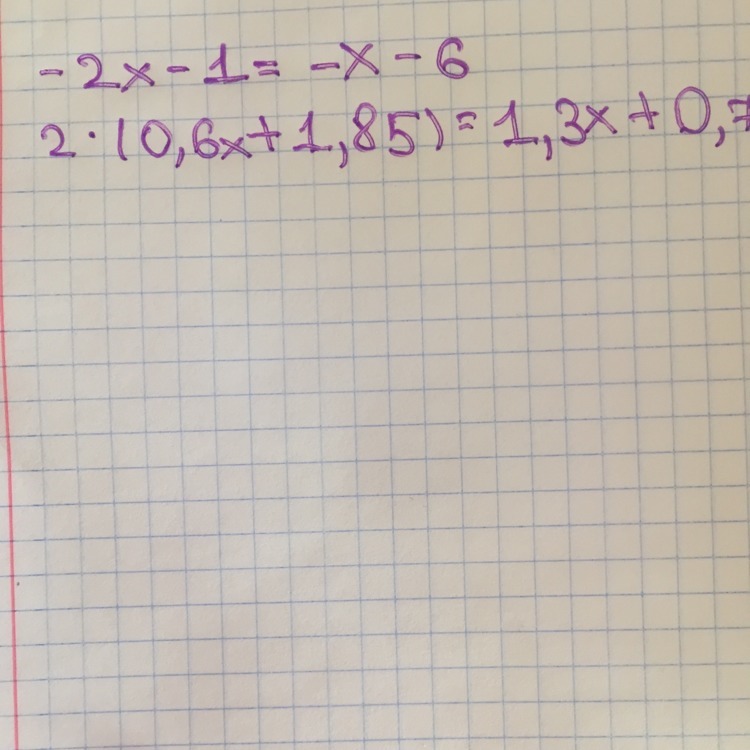 -2x-1= -x-6
2·(0,6x+1,85)=1,3x+0,7